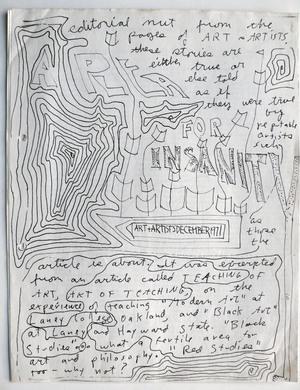 editorial nut from the
pages of ART ~ ARTISTS
these stories are
either true or
else told
as if
they were true
by
reputable
artists
such
FOR
INSANITY
as
those
the
ART + ARTISTS DECEMBER 1971
article is about. It was excerpted
from an article called TEACHING OF
ART, (ART OF TEACHING) on the
experience of teaching "Modern Art" at
Laney College Oakland, and "Black Art"
at Laney and Hayward State. "Black
Studies" — what a fertile area for
art and philosophy. "Red Studies"
too — why not?